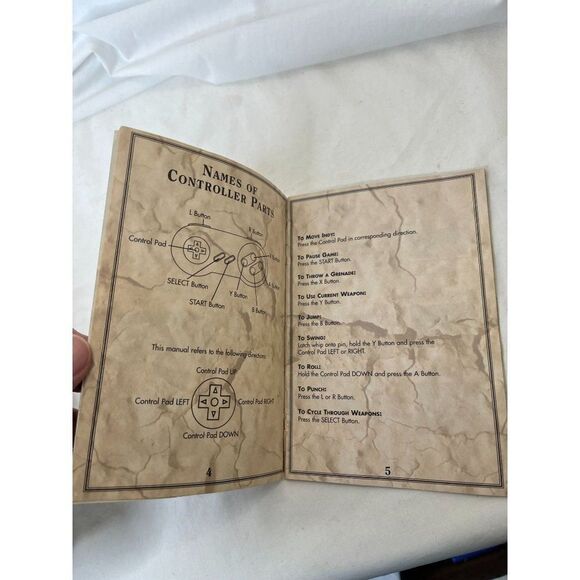 NAMES OF
CONTROLLER PARTS
L Button
R Button
Control Pad
X Button
A Button
SELECT Button
START Button
Y Button
B Button
This manual refers to the following directions
Control Pad UP
Control Pad LEFT
Control Pad RIGHT
Control Pad DOWN
4
TO MOVE INDY:
Press the Control Pad in corresponding direction.
TO PAUSE GAME:
Press the START Button.
TO THROW A GRENADE:
Press the X Button.
TO USE CURRENT WEAPON:
Press the Y Button.
TO JUMP:
Press the B Button.
TO SWING:
Latch whip onto pin, hold the Y Button and press the
Control Pad LEFT or RIGHT.
TO ROLL:
Hold the Control Pad DOWN and press the A Button.
TO PUNCH:
Press the L or R Button.
TO CYCLE THROUGH WEAPONS:
Press the SELECT Button.
5